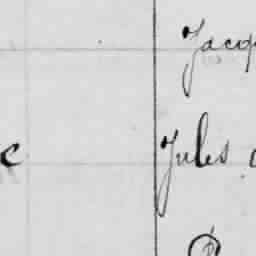 Jacq
c Jules